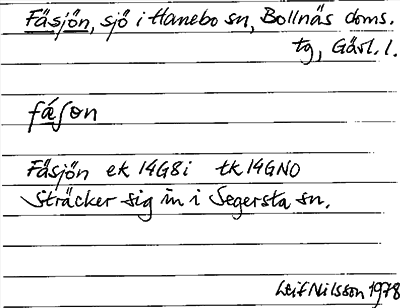 Fäsjön, sjö i Hanebo sn, Bollnäs doms.
tg, Gävl. l.
fǽʃøn
Fäsjön ek 14G8i tk 14GNO
Sträcker sig in i Segersta sn.
Leif Nilsson 1978